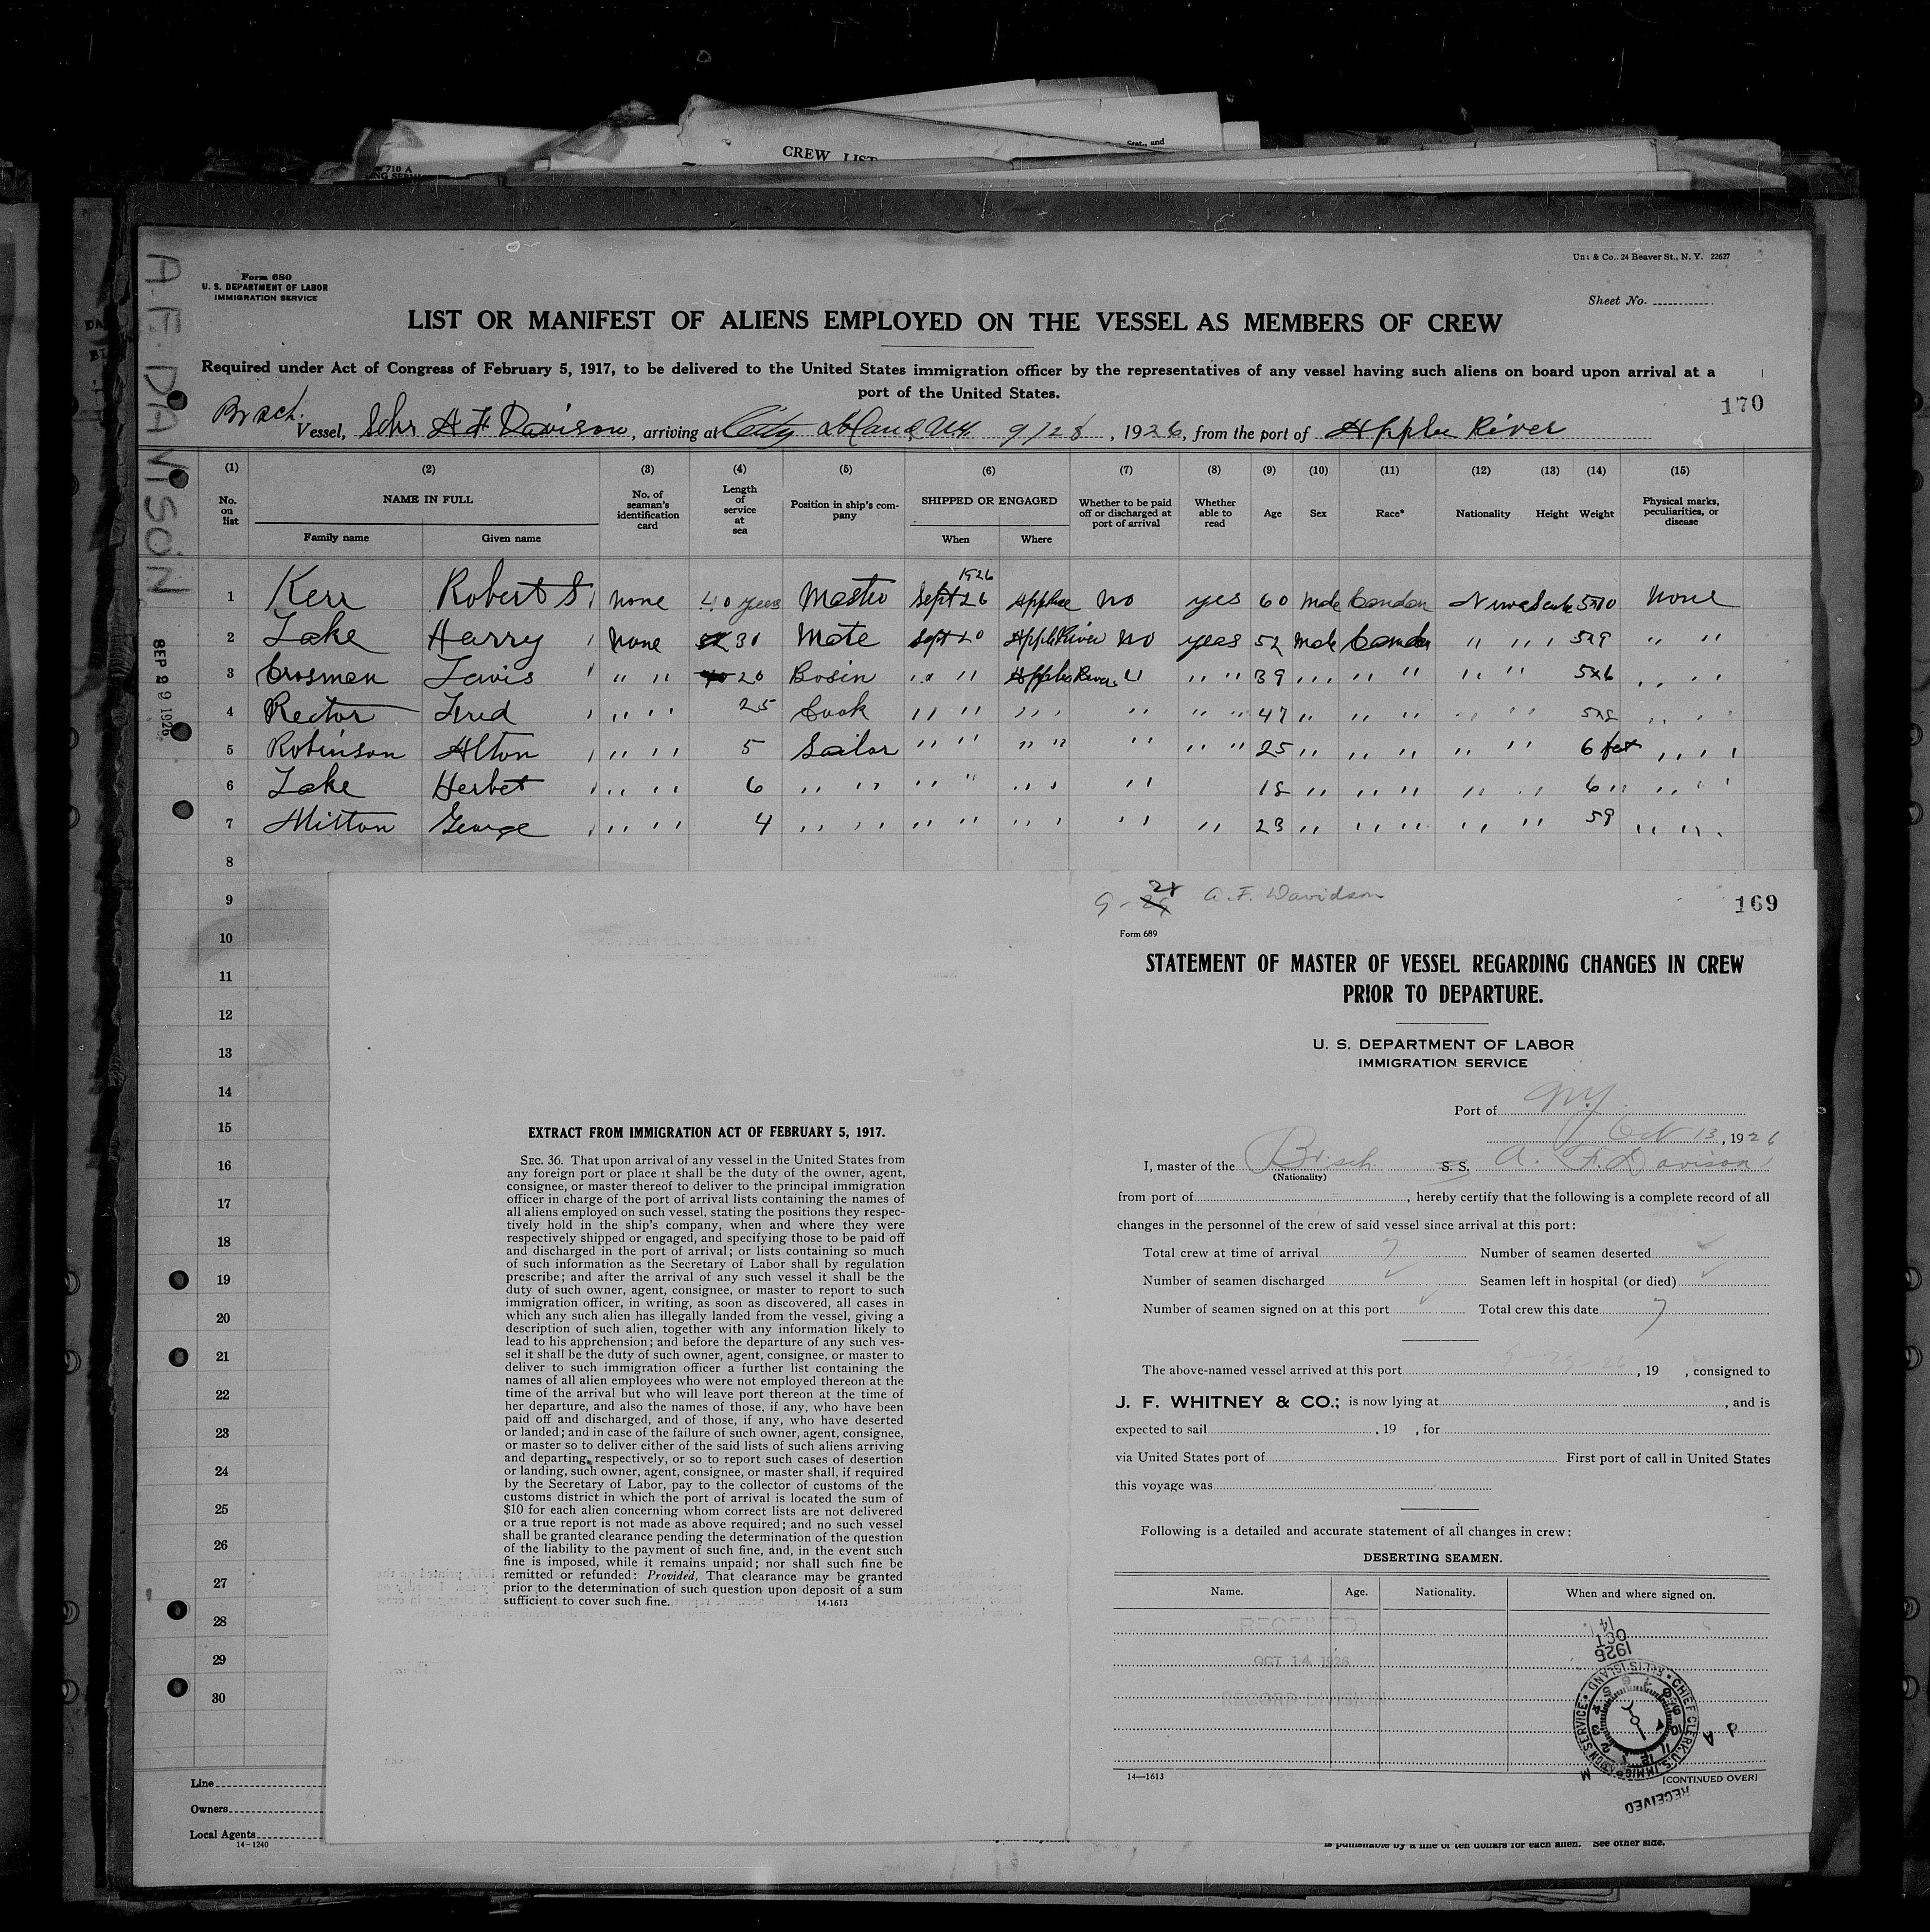 CREW LIST
Seat., and
710 A
Form 680
U. S. DEPARTMENT OF LABOR
IMMIGRATION SERVICE
& Co., 24 Beaver St., N. Y. 22627
Sheet No.
A. F. DAVISON
SEP 29 1926
LIST OR MANIFEST OF ALIENS EMPLOYED ON THE VESSEL AS MEMBERS OF CREW
Required under Act of Congress of February 5, 1917, to be delivered to the United States immigration officer by the representatives of any vessel having such aliens on board upon arrival at a
port of the United States.
170
Br sch.
Vessel, Schr A F Davison, arriving at City Island NY 9/28, 1926, from the port of Apple River
(1) (2) (3) (4) (5) (6) (7) (8) (9) (10) (11) (12) (13) (14) (15)
No. on list NAME IN FULL Family name Given name No. of seaman's identification card Length of service at sea Position in ship's company SHIPPED OR ENGAGED When Where Whether to be paid off or discharged at port of arrival Whether able to read Age Sex Race* Nationality Height Weight Physical marks, peculiarities, or disease
1926
1 Kerr Robert S None 40 years Master Sept 26 No yes 60 Male 5x10 None
2 Lake Harry None 30 Mate Sept 20 Apple River No years 52 Male " " 5x9 " "
3 Crosman " " 20 Bosin " " Apple River " " " 39 " " " " " 5x6 " "
4 Rector Fred " " 25 Cook " " " " " " " 47 " " " " " 5x8 " "
5 Robinson Alton " " 5 Sailor " " " " " " " 25 " " " " " 6 feet " "
6 Lake Herbet " " 6 " " " " " " " 18 " " " " " 6 " " "
7 George " " 4 " " " " " " " " 23 " " " " " 59 " "
8
9
10
11
12
13
14
15
16
17
18
19
20
21
22
23
24
25
26
27
28
29
30
Line
Owners
Local Agents
14-1240
EXTRACT FROM IMMIGRATION ACT OF FEBRUARY 5, 1917.
SEC. 36. That upon arrival of any vessel in the United States from
any foreign port or place it shall be the duty of the owner, agent,
consignee, or master thereof to deliver to the principal immigration
officer in charge of the port of arrival lists containing the names of
all aliens employed on such vessel, stating the positions they respec-
tively hold in the ship's company, when and where they were
respectively shipped or engaged, and specifying those to be paid off
and discharged in the port of arrival; or lists containing so much
of such information as the Secretary of Labor shall by regulation
prescribe; and after the arrival of any such vessel it shall be the
duty of such owner, agent, consignee, or master to report to such
immigration officer, in writing, as soon as discovered, all cases in
which any such alien has illegally landed from the vessel, giving a
description of such alien, together with any information likely to
lead to his apprehension; and before the departure of any such ves-
sel it shall be the duty of such owner, agent, consignee, or master to
deliver to such immigration officer a further list containing the
names of all alien employees who were not employed thereon at the
time of the arrival but who will leave port thereon at the time of
her departure, and also the names of those, if any, who have been
paid off and discharged, and of those, if any, who have deserted
or landed; and in case of the failure of such owner, agent, consignee,
or master so to deliver either of the said lists of such aliens arriving
and departing, respectively, or so to report such cases of desertion
or landing, such owner, agent, consignee, or master shall, if required
by the Secretary of Labor, pay to the collector of customs of the
customs district in which the port of arrival is located the sum of
$10 for each alien concerning whom correct lists are not delivered
or a true report is not made as above required; and no such vessel
shall be granted clearance pending the determination of the question
of the liability to the payment of such fine, and, in the event such
fine is imposed, while it remains unpaid; nor shall such fine be
remitted or refunded: Provided, That clearance may be granted
prior to the determination of such question upon deposit of a sum
sufficient to cover such fine. 14-1613
9-28 A. F. Davidson
169
Form 689
STATEMENT OF MASTER OF VESSEL REGARDING CHANGES IN CREW
PRIOR TO DEPARTURE.
U. S. DEPARTMENT OF LABOR
IMMIGRATION SERVICE
Port of NY
Oct 13, 1926
I, master of the Br sch S. S. A. F. Davison
(Nationality)
from port of , hereby certify that the following is a complete record of all
changes in the personnel of the crew of said vessel since arrival at this port:
Total crew at time of arrival 7 Number of seamen deserted ✓
Number of seamen discharged ✓ Seamen left in hospital (or died) ✓
Number of seamen signed on at this port ✓ Total crew this date 7
The above-named vessel arrived at this port , 19 , consigned to
J. F. WHITNEY & CO.; is now lying at , and is
expected to sail , 19 , for
via United States port of First port of call in United States
this voyage was
Following is a detailed and accurate statement of all changes in crew:
DESERTING SEAMEN.
Name. Age. Nationality. When and where signed on.
RECEIVED
OCT 14 1926
RECORD DIVISION
1926 OCT 14
CHIEF CLERK, U.S. IMMIGRATION SERVICE • ELLIS ISLAND •
A M P
RECEIVED
14—1613
[CONTINUED OVER]
is punishable by a fine of ten dollars for each alien. See other side.